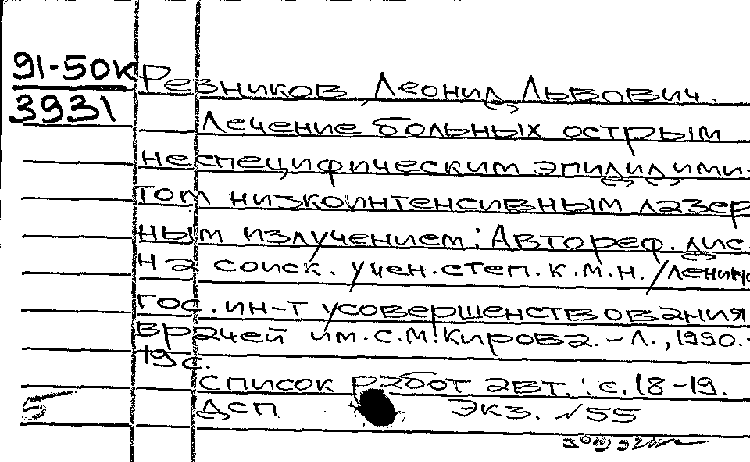 91-50к
3931
Резников, Леонид Львович.
Лечение больных острым
неспецифическим эпидидими-
том низкоинтенсивным лазер
ным излучением: Автореф. дис.
на соиск. учен. степ. к.м.н. /Ленинг
гос. ин-т усовершенствования
врачей им. С.М.Кирова. - Л., 1990. -
19 с.
Список работ авт.: с. 18-19.
5 ДСП Экз. №55